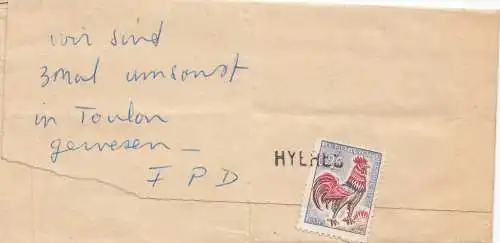 wir sind
3mal umsonst
in Toulon
gewesen –
F P D
HYERES